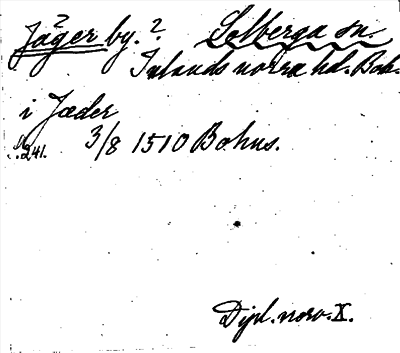 Jäger by. ? Solberga sn.
Inlands norra hd. Boh.
i Jæder
s. 241. 3/8 1510 Bohus.
Dipl. norv. X.